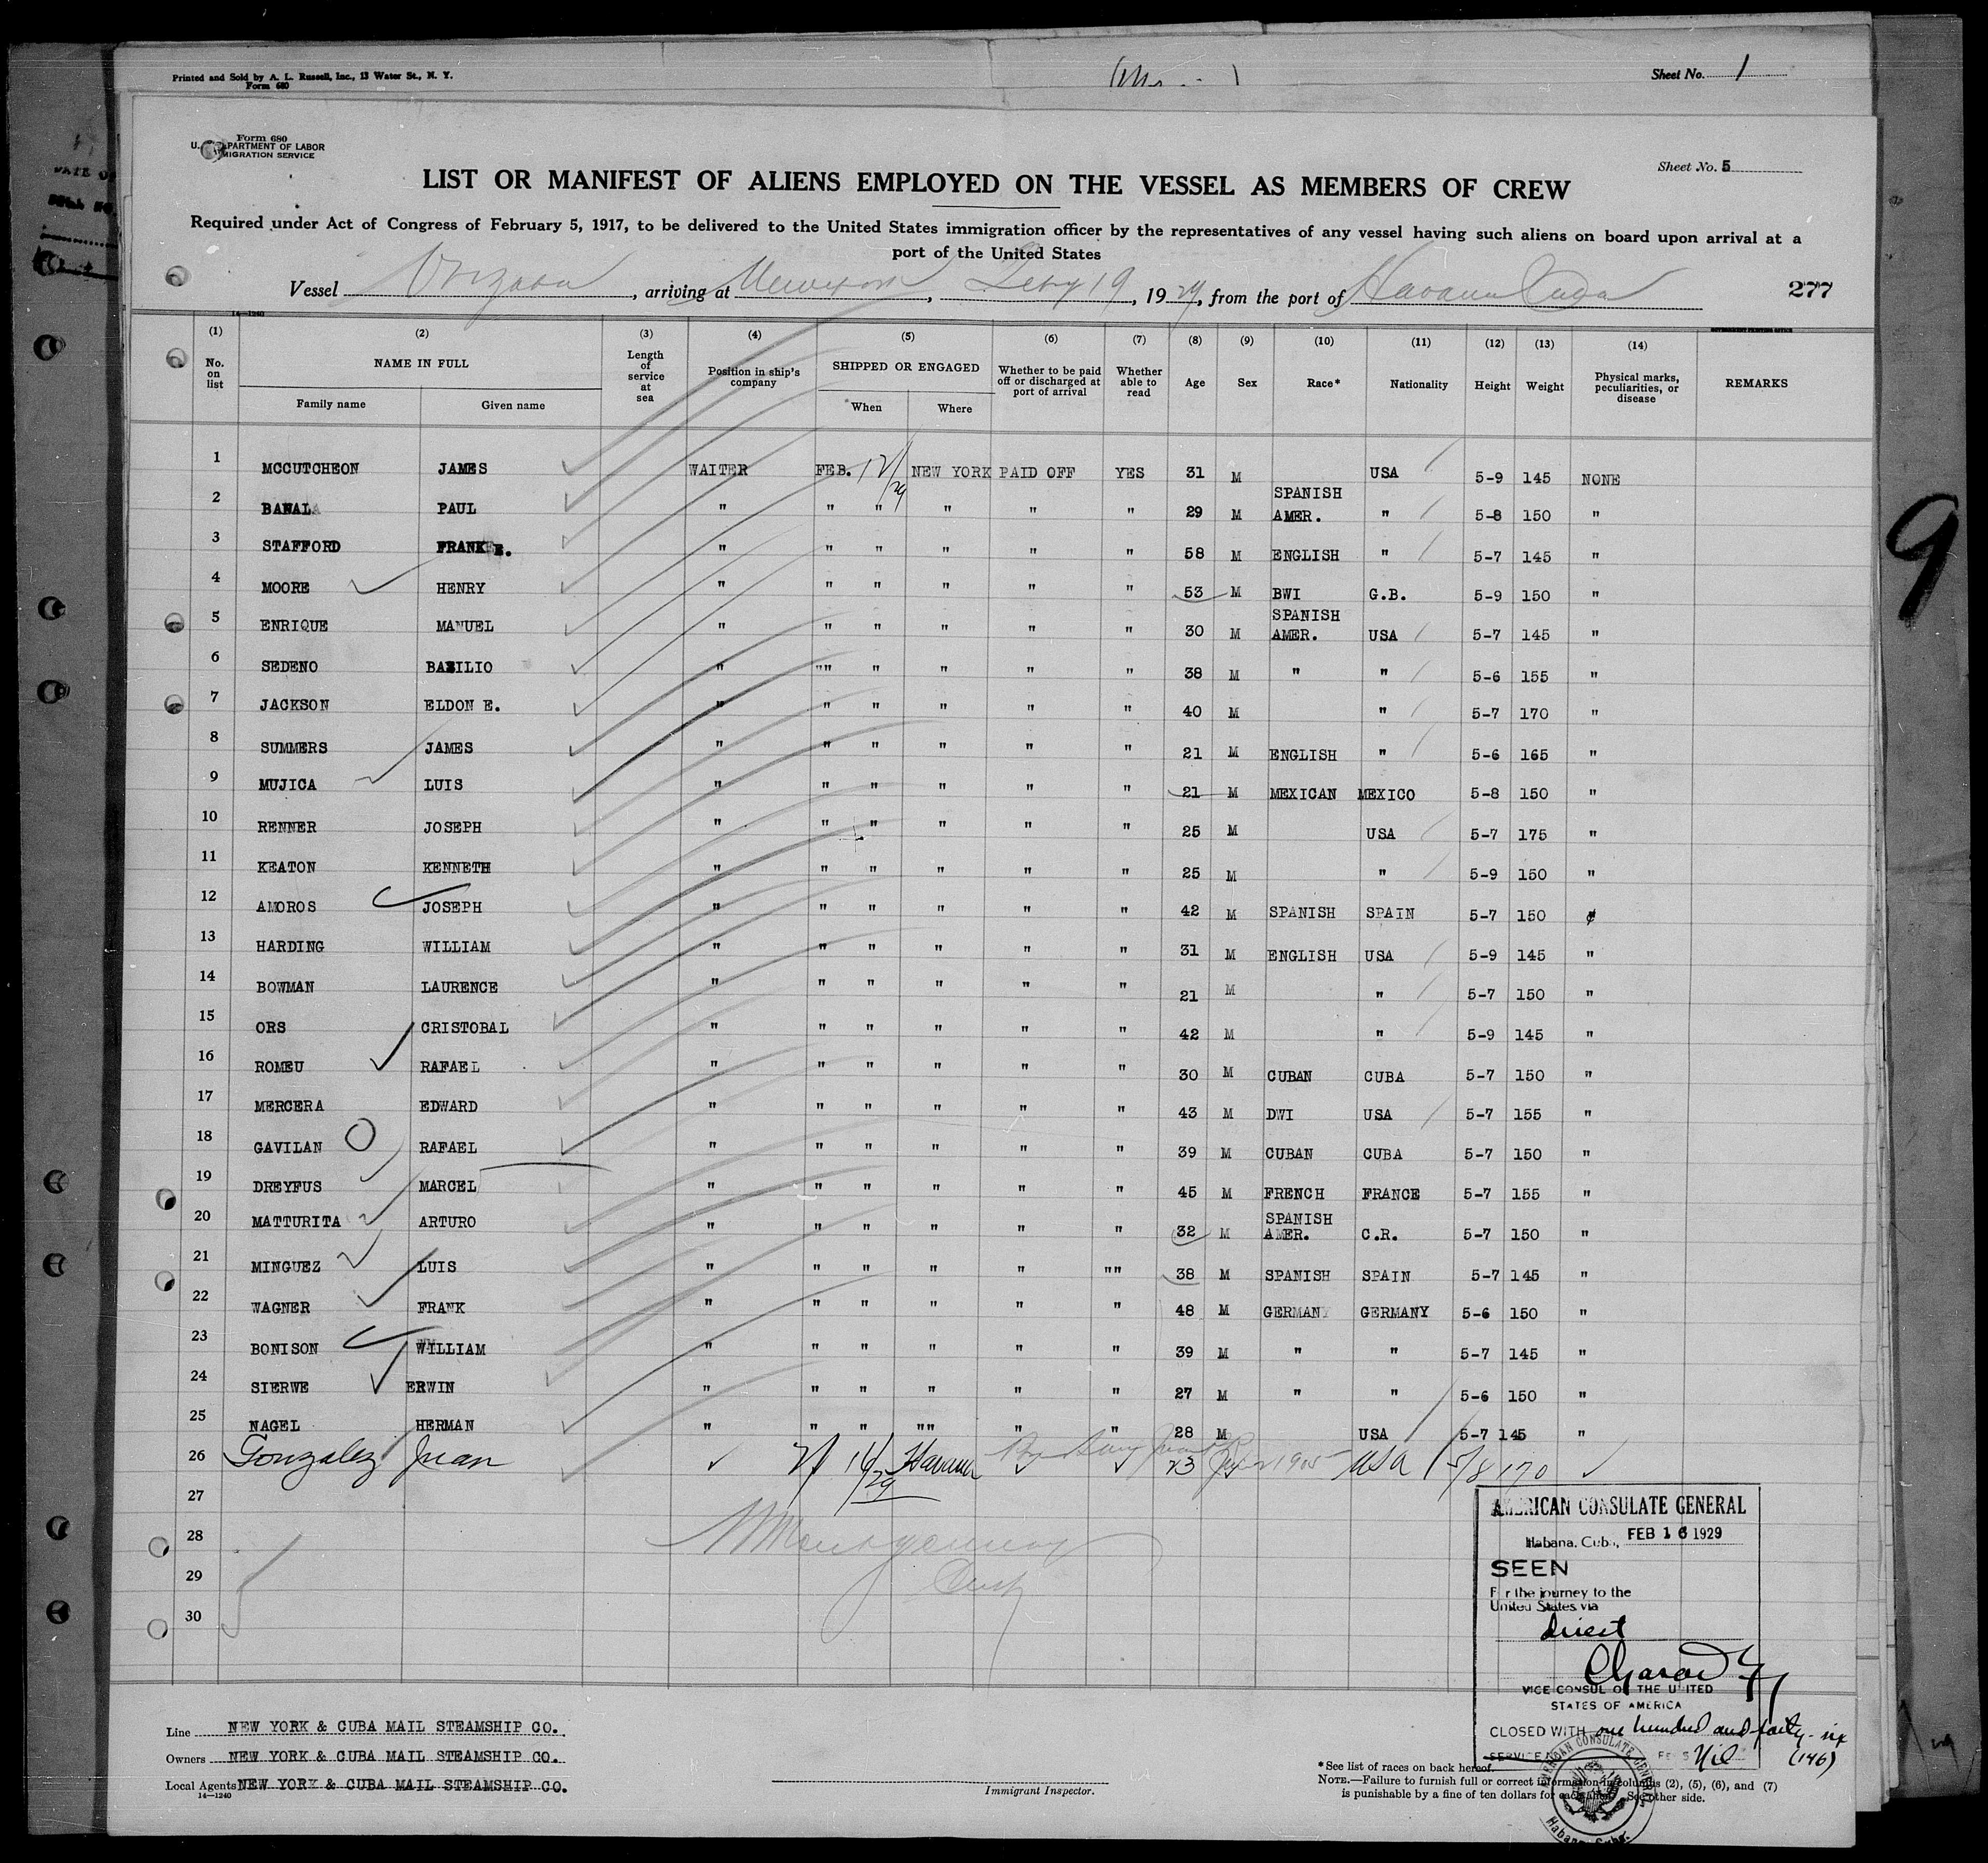 Printed and Sold by A. L. Russell, Inc., 13 Water St., N. Y.
Form 680
Sheet No. 1
Form 680
U. DEPARTMENT OF LABOR
IMMIGRATION SERVICE
Sheet No. 5
LIST OR MANIFEST OF ALIENS EMPLOYED ON THE VESSEL AS MEMBERS OF CREW
Required under Act of Congress of February 5, 1917, to be delivered to the United States immigration officer by the representatives of any vessel having such aliens on board upon arrival at a
port of the United States
Vessel Orizaba, arriving at New York, Feby 19, 1929, from the port of Havana Cuba 277
14—1240
(1) (2) (3) (4) (5) (6) (7) (8) (9) (10) (11) (12) (13) (14)
No. on list NAME IN FULL Length of service at sea Position in ship's company SHIPPED OR ENGAGED Whether to be paid off or discharged at port of arrival Whether able to read Age Sex Race* Nationality Height Weight Physical marks, peculiarities, or disease REMARKS
Family name Given name When Where
1 MCCUTCHEON JAMES WAITER FEB. 12/29 NEW YORK PAID OFF YES 31 M USA 5-9 145 NONE
2 BANALA PAUL " " " " " " 29 M SPANISH AMER. " 5-8 150 "
3 STAFFORD FRANK E. " " " " " " 58 M ENGLISH " 5-7 145 "
4 MOORE HENRY " " " " " " 53 M BWI G.B. 5-9 150 "
5 ENRIQUE MANUEL " " " " " " 30 M SPANISH AMER. USA 5-7 145 "
6 SEDENO BASILIO " "" " " " " 38 M " " 5-6 155 "
7 JACKSON ELDON E. " " " " " " 40 M " 5-7 170 "
8 SUMMERS JAMES " " " " " " 21 M ENGLISH " 5-6 165 "
9 MUJICA LUIS " " " " " " 21 M MEXICAN MEXICO 5-8 150 "
10 RENNER JOSEPH " " " " " " 25 M USA 5-7 175 "
11 KEATON KENNETH " " " " " " 25 M " 5-9 150 "
12 AMOROS JOSEPH " " " " " " 42 M SPANISH SPAIN 5-7 150
13 HARDING WILLIAM " " " " " " 31 M ENGLISH USA 5-9 145 "
14 BOWMAN LAURENCE " " " " " " 21 M " 5-7 150 "
15 ORS CRISTOBAL " " " " " " 42 M " 5-9 145 "
16 ROMEU RAFAEL " " " " " " 30 M CUBAN CUBA 5-7 150 "
17 MERCERA EDWARD " " " " " " 43 M DWI USA 5-7 155 "
18 GAVILAN RAFAEL " " " " " " 39 M CUBAN CUBA 5-7 150 "
19 DREYFUS MARCEL " " " " " " 45 M FRENCH FRANCE 5-7 155 "
20 MATTURITA ARTURO " " " " " " 32 M SPANISH AMER. C.R. 5-7 150 "
21 MINGUEZ LUIS " " " " " "" 38 M SPANISH SPAIN 5-7 145 "
22 WAGNER FRANK " " " " " " 48 M GERMANY GERMANY 5-6 150 "
23 BONISON WILLIAM " " " " " " 39 M " " 5-7 145 "
24 SIERWE ERWIN " " " " " " 27 M " " 5-6 150 "
25 NAGEL HERMAN " " " "" " " 28 M USA 5-7 145 "
26 Gonzalez Juan 2/16/29 Havana 23 1905 USA 5/8 170
27
28
29
30
AMERICAN CONSULATE GENERAL
Habana, Cuba, FEB 16 1929
SEEN
For the journey to the
United States via
direct
VICE CONSUL OF THE UNITED
STATES OF AMERICA
CLOSED WITH one hundred and forty-six
SERVICE FEES Nil (146)
AMERICAN CONSULATE GENERAL Habana, Cuba.
Line NEW YORK & CUBA MAIL STEAMSHIP CO.
Owners NEW YORK & CUBA MAIL STEAMSHIP CO.
Local Agents NEW YORK & CUBA MAIL STEAMSHIP CO.
14—1240
Immigrant Inspector.
*See list of races on back hereof.
NOTE.—Failure to furnish full or correct information in columns (2), (5), (6), and (7)
is punishable by a fine of ten dollars for each alien. See other side.
9